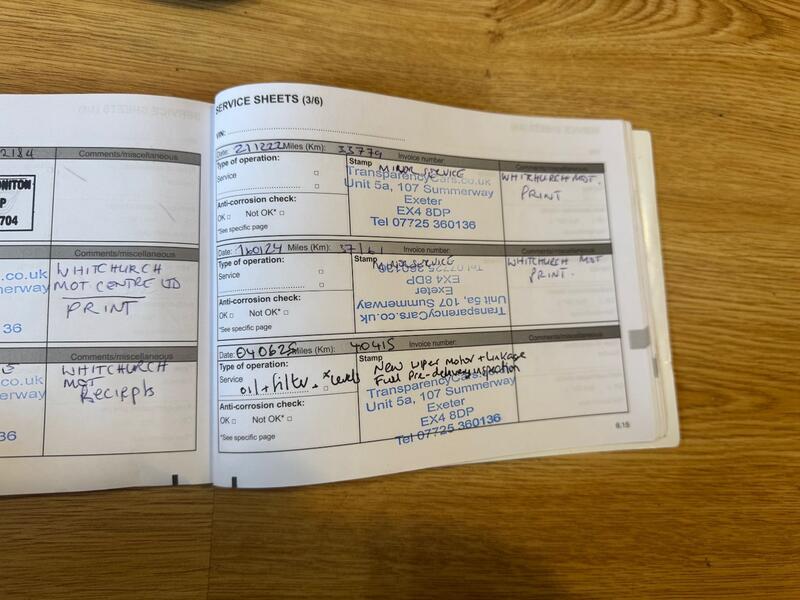 2184
Comments/miscellaneous
ONITON
P
704
Comments/miscellaneous
WHITCHURCH
MOT CENTRE LTD
PRINT
s.co.uk
mmerway
36
Comments/miscellaneous
WHITCHURCH
MOT
Recieppts
o.uk
merway
136
SERVICE SHEETS (3/6)
VIN:
Date: 211222 Miles (Km): 33779 Invoice number:
Type of operation:
Service
Anti-corrosion check:
OK □ Not OK* □
*See specific page
Stamp MINOR SERVICE
TransparencyCars.co.uk
Unit 5a, 107 Summerway
Exeter
EX4 8DP
Tel 07725 360136
WHITCHURCH MOT.
PRINT
Date: 160124 Miles (Km): 37161 Invoice number:
Type of operation:
Service
Anti-corrosion check:
OK □ Not OK* □
*See specific page
Stamp MINOR SERVICE
TransparencyCars.co.uk
Unit 5a, 107 Summerway
Exeter
EX4 8DP
Tel 07725 360136
WHITCHURCH MOT
PRINT.
Date: 040625 Miles (Km): 40415 Invoice number:
Type of operation:
Service
oil + filter + levels
Anti-corrosion check:
OK □ Not OK* □
*See specific page
Stamp
New wiper motor + linkage
Full Pre-delivery inspection
TransparencyCars.co.uk
Unit 5a, 107 Summerway
Exeter
EX4 8DP
Tel 07725 360136
6.15